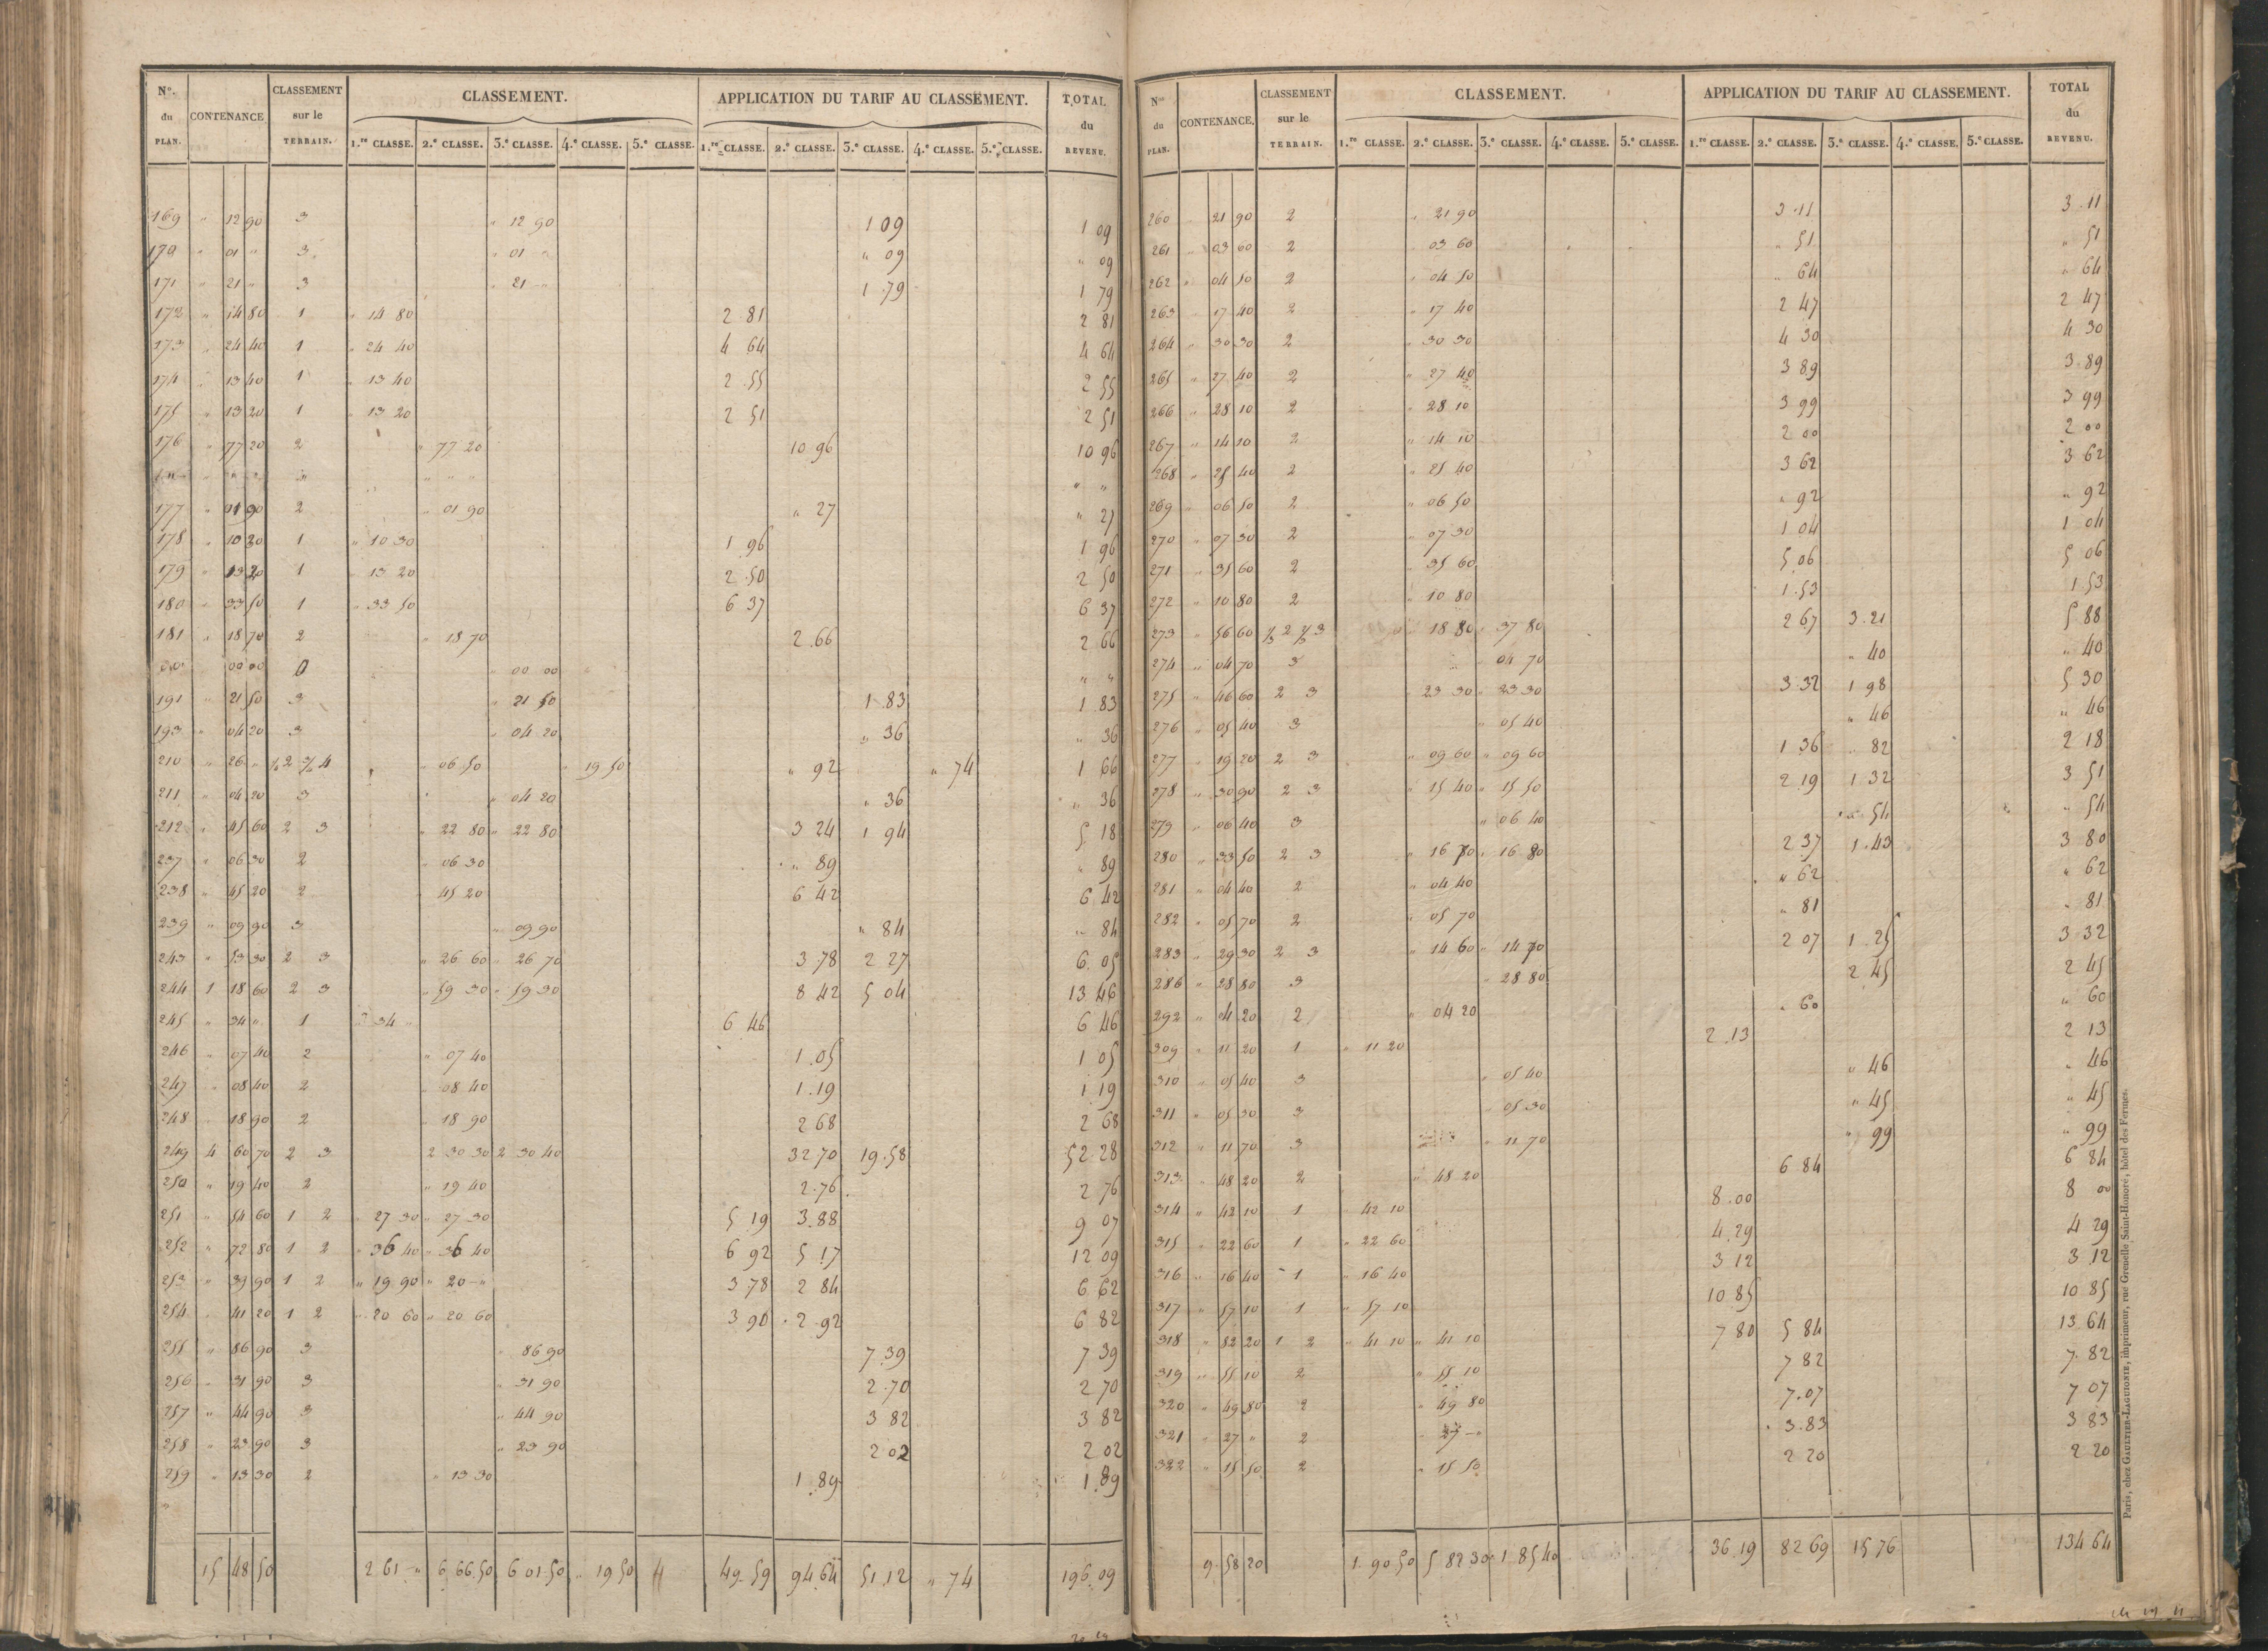 N.° du PLAN. CONTENANCE CLASSEMENT sur le TERRAIN. CLASSEMENT. APPLICATION DU TARIF AU CLASSEMENT. TOTAL du REVENU.
1.re CLASSE. 2.e CLASSE. 3.e CLASSE. 4.e CLASSE. 5.e CLASSE. 1.re CLASSE. 2.e CLASSE. 3.e CLASSE. 4.e CLASSE. 5.e CLASSE.
169 " 12 90 3 " 12 90 1 09 1 09
170 " 01 " 3 " 01 " " 09 " 09
171 " 21 " 3 " 21 " 1.79 1 79
172 " 14 80 1 " 14 80 2 81 2 81
173 " 24 40 1 " 24 40 4 64 4 64
174 " 13 40 1 " 13 40 2.55 2 55
175 " 13 20 1 " 13 20 2 51 2 51
176 " 77 20 2 " 77 20 10 96 10 96
" " " " " " " " "
177 " 01 90 2 " 01 90 " 27 " 27
178 " 10 30 1 " 10 30 1 96 1 96
179 " 13 20 1 " 13 20 2.50 2 50
180 " 33 50 1 " 33 50 6 37 6 37
181 " 18 70 2 " 18 70 2.66 2 66
00 00 00 0 " 00 00 " "
191 " 21 50 3 " 21 50 1.83 1 83
193 " 04 20 3 " 04 20 " 36 " 36
210 " 26 " 1/4 2 3/4 4 " 06 50 " 19 50 " 92 " 74 1 66
211 " 04 20 3 " 04 20 " 36 " 36
212 " 45 60 2 3 " 22 80 " 22 80 3 24 1 94 5 18
237 " 06 30 2 " 06 30 " 89 " 89
238 " 45 20 2 " 45 20 6 42 6 42
239 " 09 90 3 " 09 90 " 84 " 84
243 " 53 30 2 3 " 26 60 " 26 70 3 78 2 27 6 05
244 1 18 60 2 3 " 59 30 " 59 30 8 42 5 04 13 46
245 " 34 " 1 " 34 " 6 46 6 46
246 " 07 40 2 " 07 40 1.05 1 05
247 " 08 40 2 " 08 40 1.19 1 19
248 " 18 90 2 " 18 90 2 68 2 68
249 4 60 70 2 3 2 30 30 2 30 40 32 70 19.58 52 28
250 " 19 40 2 " 19 40 2.76 2 76
251 " 54 60 1 2 " 27 30 " 27 30 5 19 3.88 9 07
252 " 72 80 1 2 " 36 40 " 36 40 6 92 5 17 12 09
253 " 39 90 1 2 " 19 90 " 20 " 3 78 2 84 6 62
254 " 41 20 1 2 " 20 60 " 20 60 3 90 2.92 6 82
255 " 86 90 3 " 86 90 7.39 7 39
256 " 31 90 3 " 31 90 2.70 2 70
257 " 44 90 3 " 44 90 3 82 3 82
258 " 23 90 3 " 23 90 2 02 2 02
259 " 13 30 2 " 13 30 1.89 1.89
"
15 48 50 2 61 " 6 66 50 6 01 50 " 19 50 49 59 94 64 51.12 " 74 196 09
N.os du PLAN. CONTENANCE. CLASSEMENT sur le TERRAIN. CLASSEMENT. APPLICATION DU TARIF AU CLASSEMENT. TOTAL du REVENU.
1.re CLASSE. 2.e CLASSE. 3.e CLASSE. 4.e CLASSE. 5.e CLASSE. 1.re CLASSE. 2.e CLASSE. 3.e CLASSE. 4.e CLASSE. 5.e CLASSE.
260 " 21 90 2 " 21 90 3.11 3.11
261 " 03 60 2 " 03 60 " 51 " 51
262 " 04 50 2 " 04 50 " 64 " 64
263 " 17 40 2 " 17 40 2 47 2 47
264 " 30 30 2 " 30 30 4 30 4 30
265 " 27 40 2 " 27 40 3 89 3.89
266 " 28 10 2 " 28 10 3 99 3 99
267 " 14 10 2 " 14 10 2 00 2 00
268 " 25 40 2 " 25 40 3 62 3 62
269 " 06 50 2 " 06 50 " 92 " 92
270 " 07 30 2 " 07 30 1 04 1 04
271 " 35 60 2 " 35 60 5 06 5 06
272 " 10 80 2 " 10 80 1.53 1.53
273 " 56 60 1/3 2 2/3 3 " 18 80 " 37 80 2 67 3.21 5 88
274 " 04 70 3 " 04 70 " 40 " 40
275 " 46 60 2 3 " 23 30 " 23 30 3.32 1 98 5 30
276 " 05 40 3 " 05 40 " 46 " 46
277 " 19 20 2 3 " 09 60 " 09 60 1 36 " 82 2 18
278 " 30 90 2 3 " 15 40 " 15 50 2 19 1 32 3 51
279 " 06 40 3 " 06 40 " 54 " 54
280 " 33 50 2 3 " 16 70 " 16 80 2 37 1.43 3 80
281 " 04 40 2 " 04 40 " 62 " 62
282 " 05 70 2 " 05 70 " 81 " 81
283 " 29 30 2 3 " 14 60 " 14 70 2 07 1.25 3 32
286 " 28 80 3 " 28 80 2 45 2 45
292 " 04 20 2 " 04 20 " 60 " 60
309 " 11 20 1 " 11 20 2.13 2 13
310 " 05 40 3 " 05 40 " 46 " 46
311 " 05 30 3 " 05 30 " 45 " 45
312 " 11 70 3 " 11 70 " 99 " 99
313 " 48 20 2 " 48 20 6 84 6 84
314 " 42 10 1 " 42 10 8.00 8 00
315 " 22 60 1 " 22 60 4.29 4 29
316 " 16 40 1 " 16 40 3 12 3 12
317 " 57 10 1 " 57 10 10 85 10 85
318 " 82 20 1 2 " 41 10 " 41 10 7 80 5 84 13 64
319 " 55 10 2 " 55 10 7 82 7.82
320 " 49 80 2 " 49 80 7.07 7 07
321 " 27 " 2 " 27 " 3.83 3 83
322 " 15 50 2 " 15 50 2 20 2 20
9 58 20 1 90 50 5 82 30 1 85 40 36 19 82 69 15 76 134 64
Paris, chez GAULTIER-LAGUIONIE, imprimeur, rue Grenelle Saint-Honoré, hôtel des Fermes.